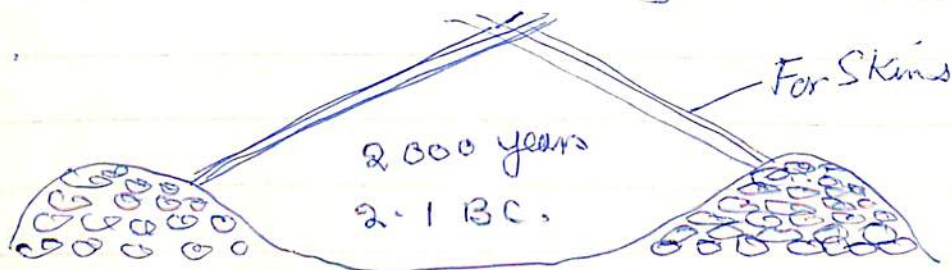 For Skins
2000 years
2.1 BC.